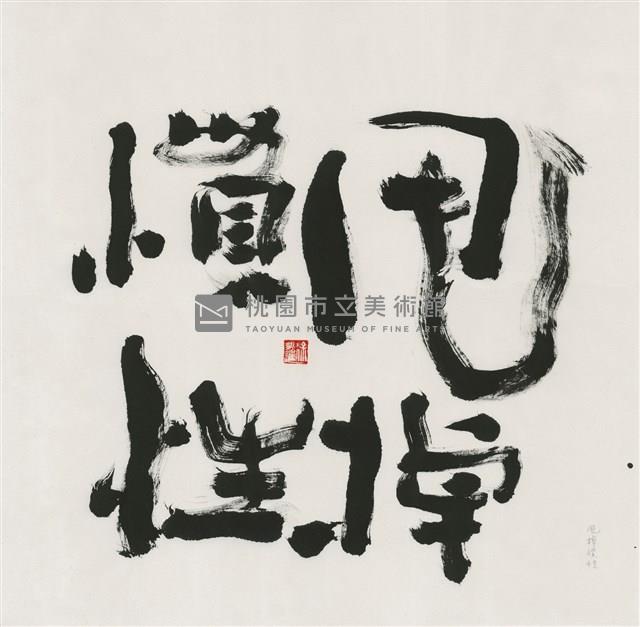 甩掉
慣性
桃園市立美術館
TAOYUAN MUSEUM OF FINE ARTS
甩掉慣性